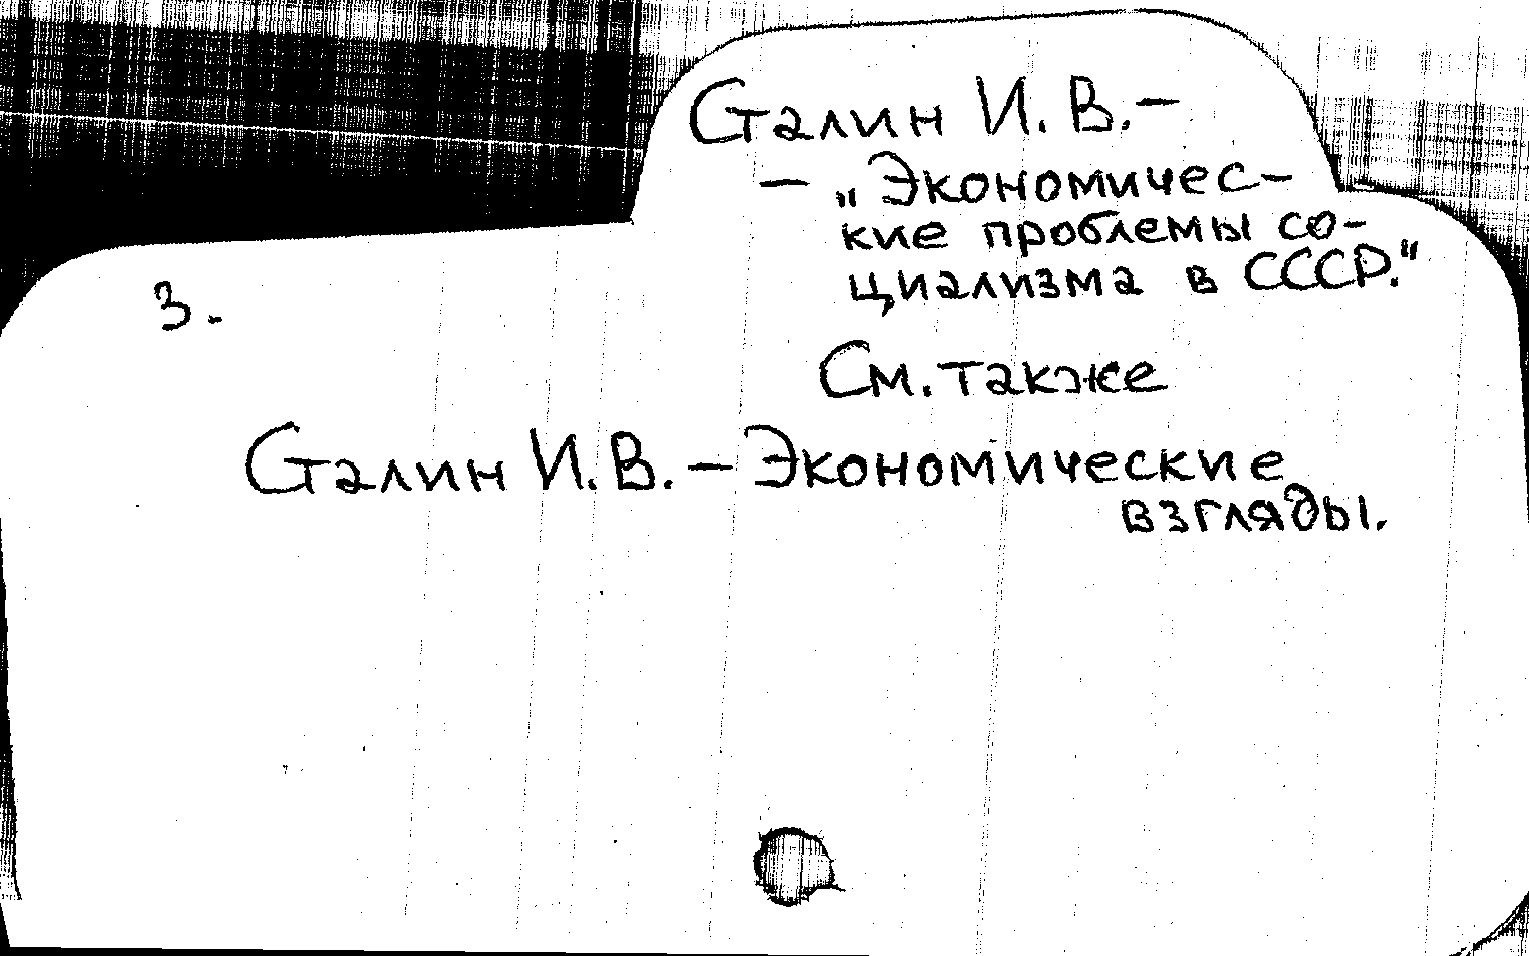 Сталин И. В. –
– „Экономичес-
кие проблемы со-
циализма в СССР."
3.
См. также
Сталин И. В. – Экономические
взгляды.